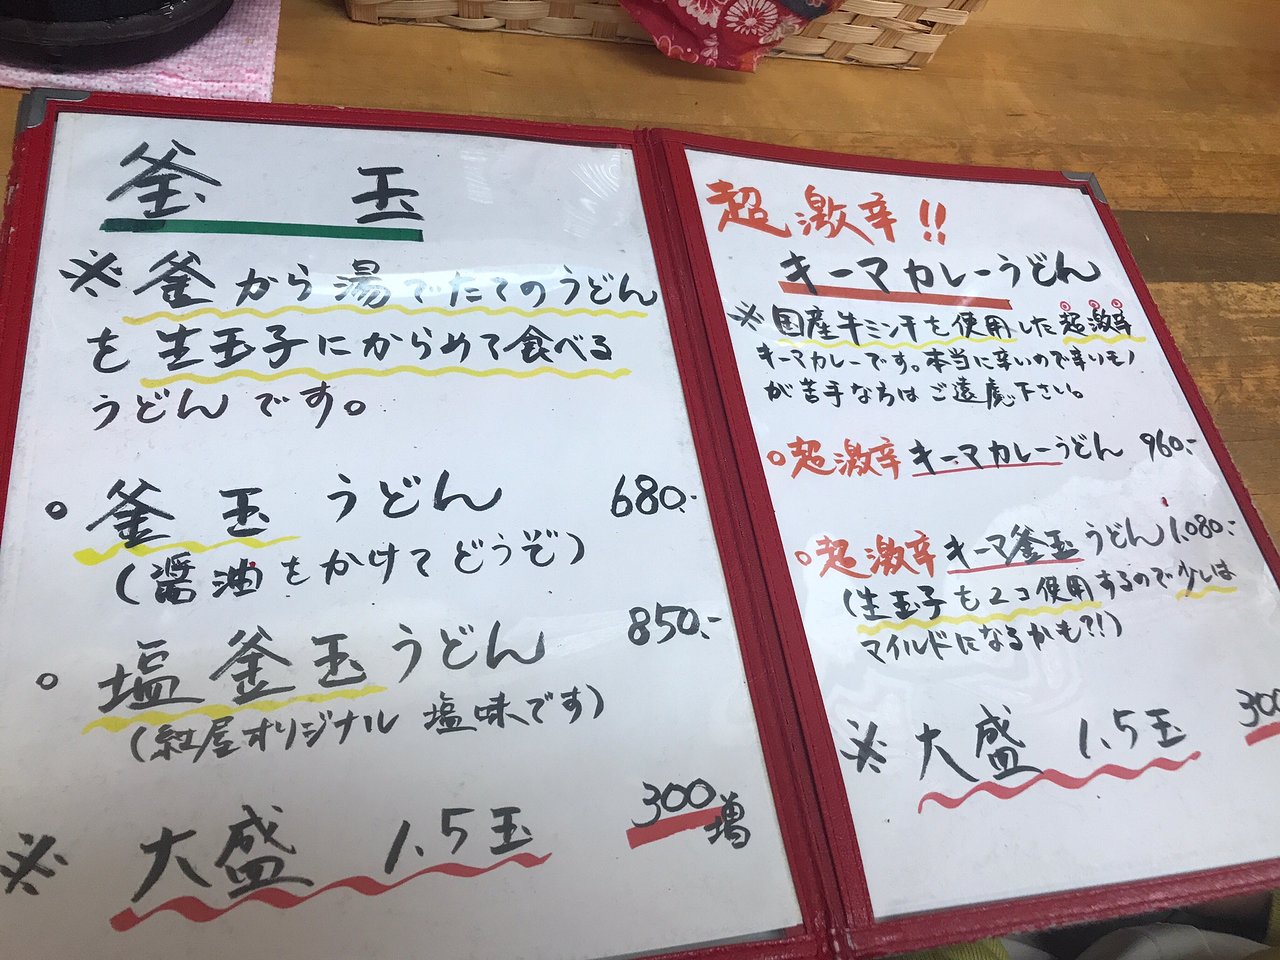 釜 玉
※釜から湯でたてのうどん
を生玉子にからめて食べる
うどんです。
○釜玉うどん 680.-
(醤油をかけてどうぞ)
○塩釜玉うどん 850.-
(紅屋オリジナル 塩味です)
※ 大盛 1.5玉 300増
超激辛!!
キーマカレーうどん
※国産牛ミンチを使用した超激辛
キーマカレーです。本当に辛いので辛いモノ
が苦手な方はご遠慮下さい。
○超激辛キーマカレーうどん 960.-
○超激辛キーマ釜玉うどん 1.080.-
(生玉子も2コ使用するので少しは
マイルドになるかも?!)
※大盛 1.5玉 300